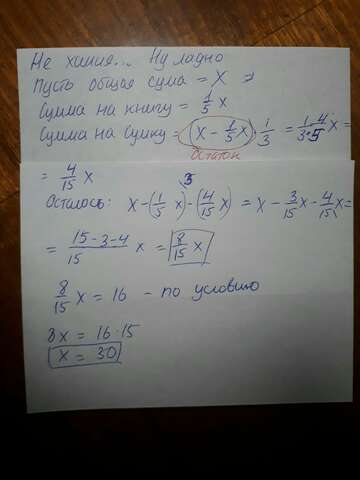 Не химия... Ну ладно
Пусть общая сума = X ⇒
Сумма на книгу = 1/5 x
Сумма на сумку = (x - 1/5 x) · 1/3 = 1·4/3·5 x =
Остаток
= 4/15 x
Осталось: x - (1/5 x) - (4/15 x) = x - 3/15 x - 4/15 x =
3
= 15-3-4/15 x = 8/15 x
8/15 x = 16 - по условию
8x = 16·15
x = 30